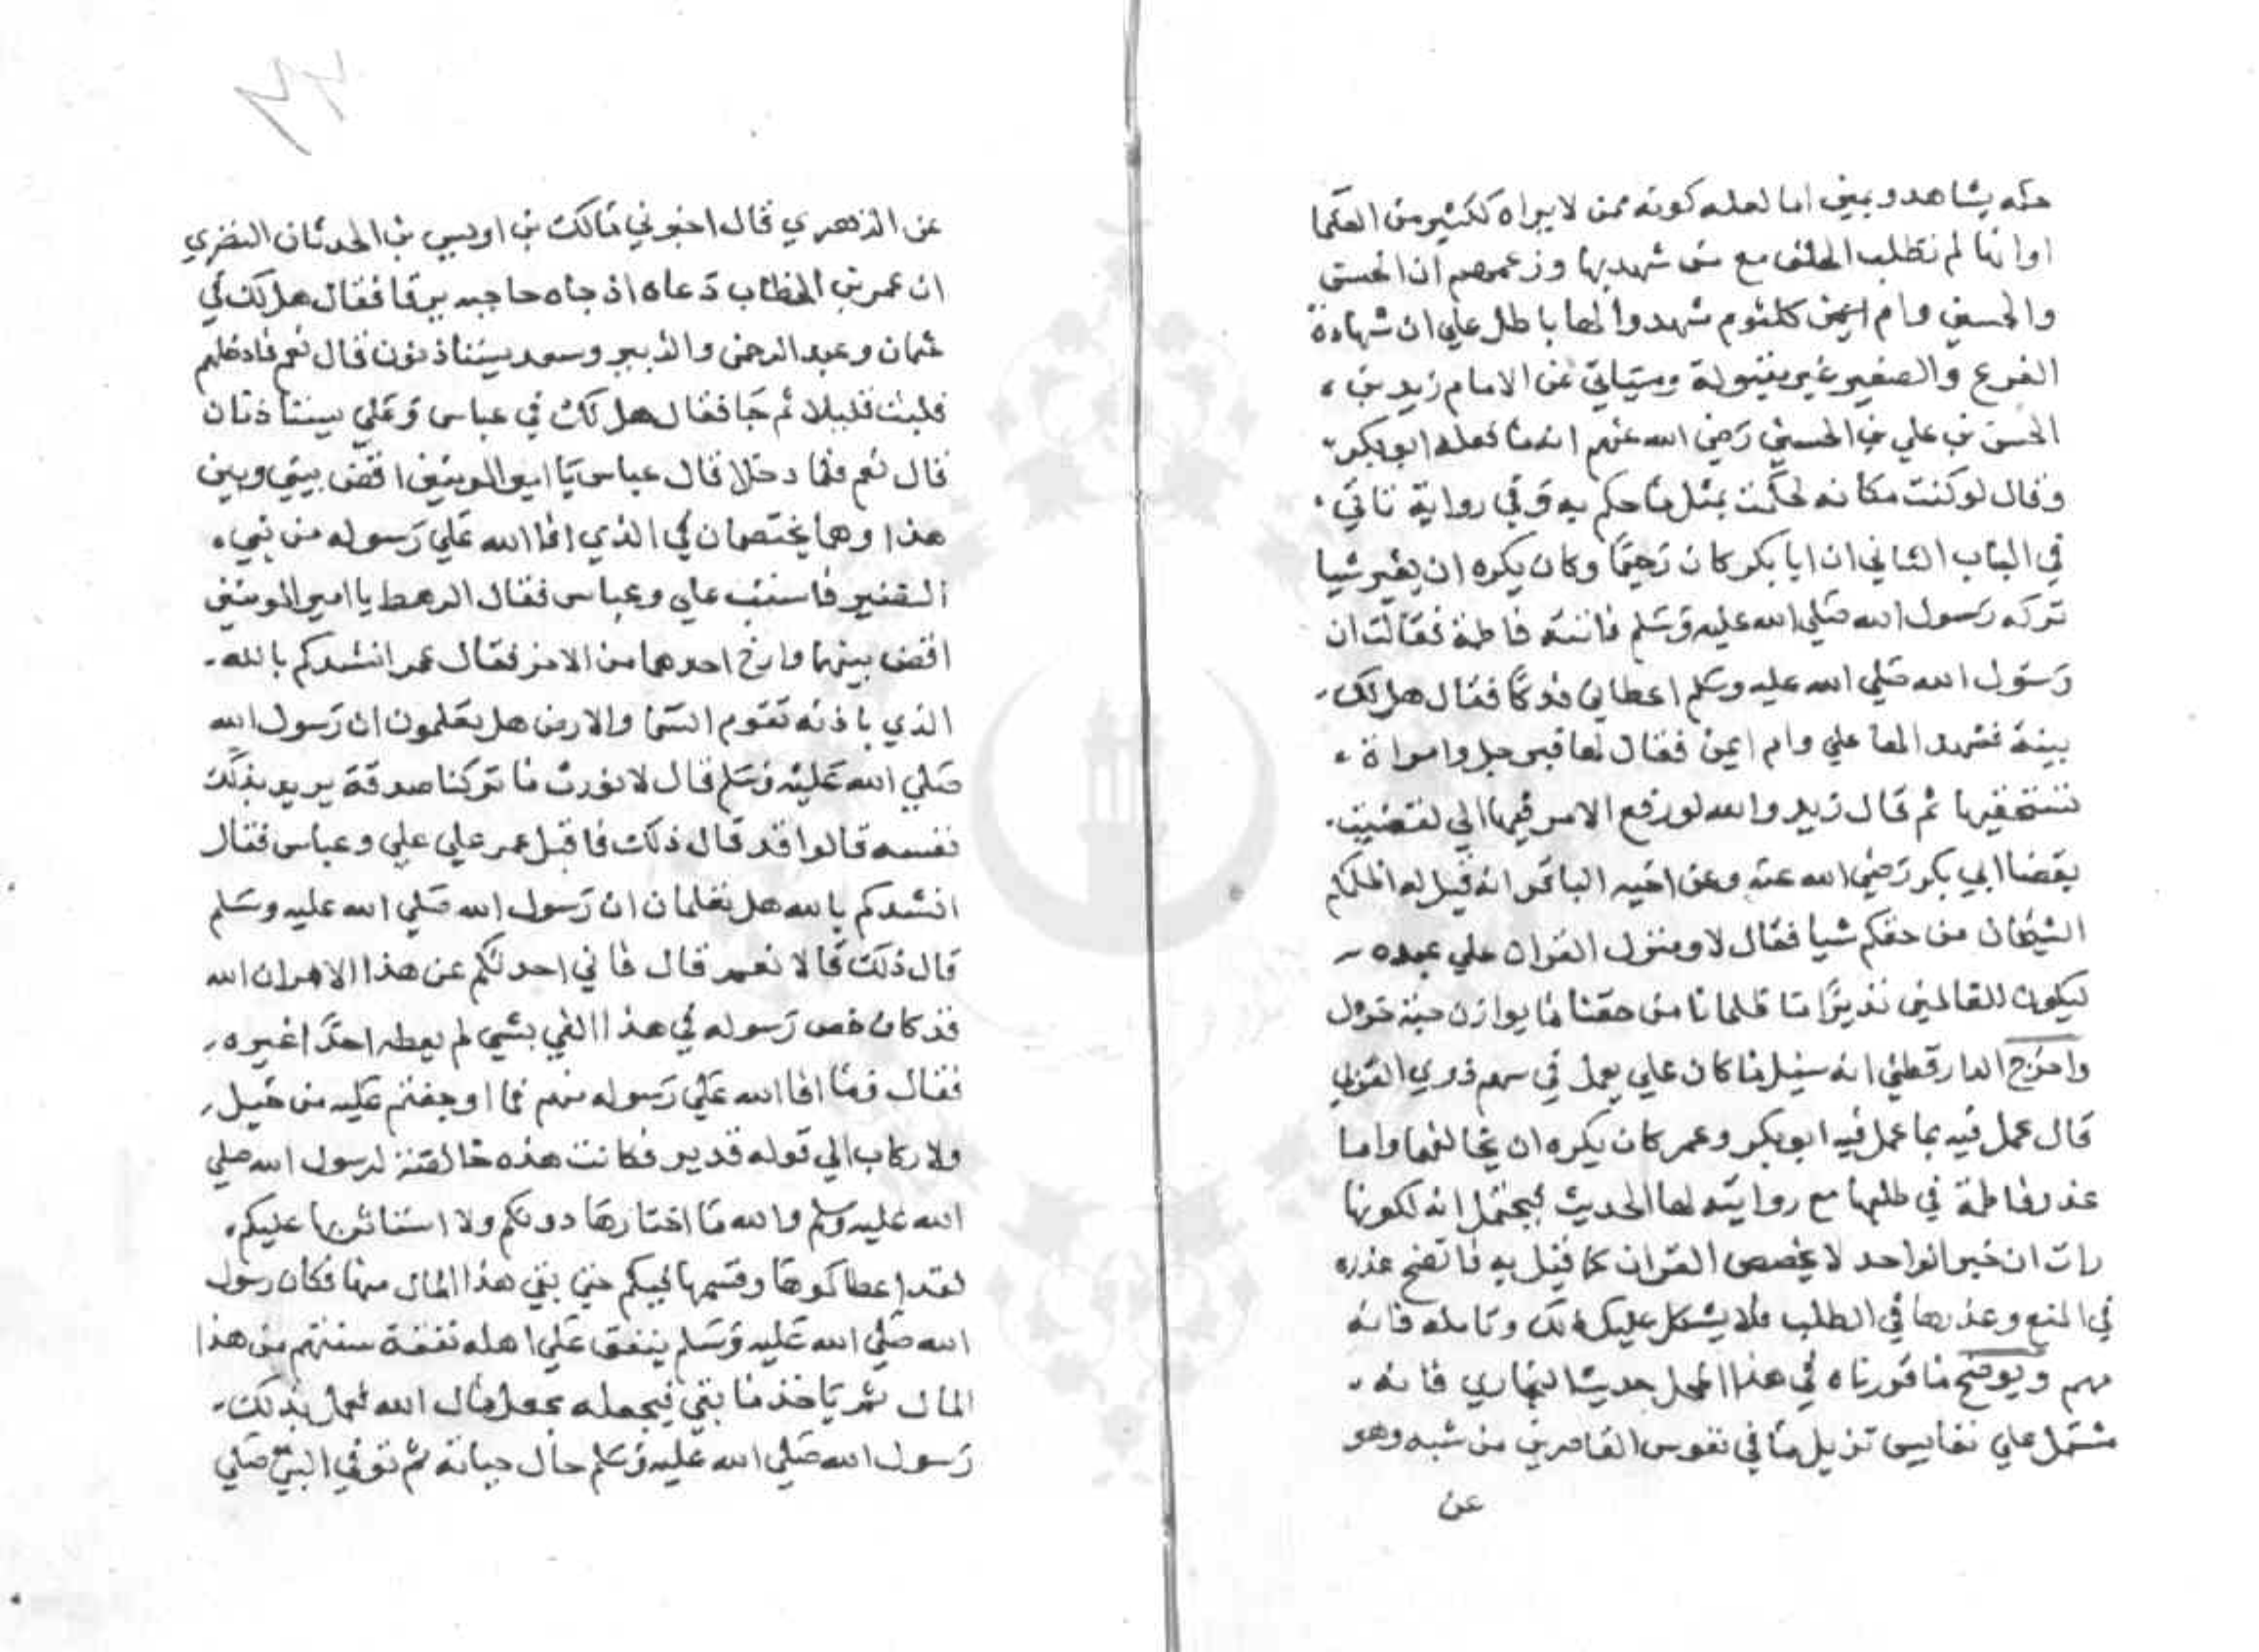 حكمه بشاهد ويمين اما لعله كونه ممن لا يراه ككثير من العلما
او انها لم تطلب الحلف مع من شهد بها وزعمهم ان الحسن
والحسين وام ايمن كلثوم شهدوا لها باطل علي ان شهادة
الفرع والصغير غير مقبولة وسياتي عن الامام زيد بن
الحسن بن علي بن الحسين رضي الله عنهم انه ما فعله ابو بكر
وقال لو كنت مكانه لحكمت بمثل ما حكم به وفي رواية تاتي
في الباب الثاني ان ابا بكر كان رحيمًا وكان يكره ان يغير شيا
تركه رسول الله صلي الله عليه وسلم فاتته فاطمة فقالت ان
رسول الله صلي الله عليه وسلم اعطاني فدكًا فقال هل لك
بينة فشهد لها علي وام ايمن فقال لها فبرجل وامراة
تستحقيها ثم قال زيد والله لو رفع الامر فيها الي لقضيت
بقضا ابي بكر رضي الله عنه وعن اخيه الباقر انه قيل له اظلمكم
الشيخان من حقكم شيا فقال لا ومنزل القران علي عبده
ليكون للعالمين نذيرًا ما ظلمانا من حقنا ما يوازن حبة خردل
واخرج الدارقطني انه سيل ما كان علي يعمل في سهم ذوي القربي
قال عمل فيه بما عمل فيه ابو بكر وعمر كان يكره ان يخالفهما واما
عذر فاطمة في طلبها مع روايته لها الحديث فيحتمل انه لكونها
رات ان خبر الواحد لا يخصص القران كما قيل به فاتضح عذره
في المنع وعذرها في الطلب فلا يشكل عليك ذلك وتامله فانه
مهم ويوضح ما قررناه في هذا المحل حديث البخاري فانه
مشتمل علي نفايس تزيل ما في نفوس القاصرين من شبه وهو
عن
٣٣
عن الزهري قال اخبرني مالك بن اويس بن الحدثان النضري
ان عمر بن الخطاب دعاه اذ جاه حاجبه يرفا فقال هل لك في
عثمان وعبد الرحمن والزبير وسعد يستاذنون قال نعم فادخلهم
فلبث قليلا ثم جا فقال هل لك في عباس وعلي يستاذنان
قال نعم فلما دخلا قال عباس يا امير المومنين اقض بيني وبين
هذا وهما يختصمان في الذي افا الله علي رسوله من بني
النضير فاستب علي وعباس فقال الرهط يا امير المومنين
اقض بينهما وارح احدهما من الاخر فقال عمر انشدكم بالله
الذي باذنه تقوم السما والارض هل تعلمون ان رسول الله
صلي الله عليه وسلم قال لا نورث ما تركنا صدقة يريد بذلك
نفسه قالوا قد قال ذلك فاقبل عمر علي علي وعباس فقال
انشدكم بالله هل تعلمان ان رسول الله صلي الله عليه وسلم
قال ذلك قالا نعم قال فاني احدثكم عن هذا الامر ان الله
قد كان خص رسوله في هذا الفي بشي لم يعطه احدًا غيره
فقال وما افا الله علي رسوله منهم فما اوجفتم عليه من خيل
ولا ركاب الي قوله قدير فكانت هذه خالصة لرسول الله صلي
الله عليه وسلم والله ما اختارها دونكم ولا استاثر بها عليكم
لقد اعطاكموها وقسمها فيكم حتي بقي هذا المال منها فكان رسول
الله صلي الله عليه وسلم ينفق علي اهله نفقة سنتهم من هذا
المال ثم ياخذ ما بقي فيجعله مجعل مال الله فعمل بذلك
رسول الله صلي الله عليه وسلم حال حياته ثم توفي النبي صلي